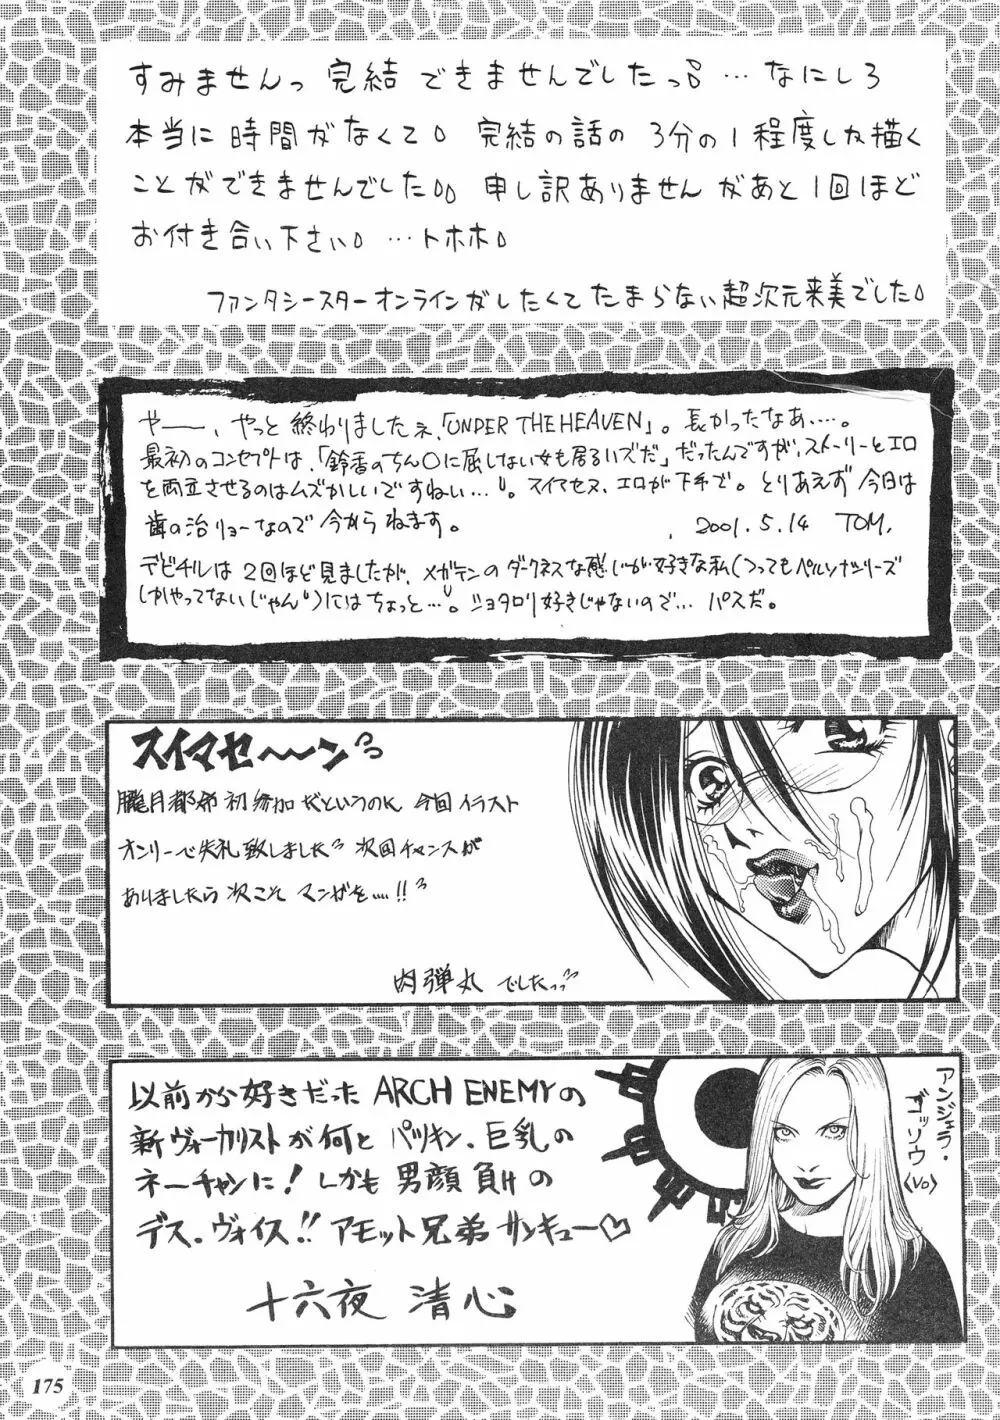 すみませんっ 完結 できませんでしたっ。 … なにしろ
本当に 時間が なくて。 完結の話の 3分の1 程度しか描く
ことが できませんでした。。 申し訳ありませんが あと 1回ほど
お付き合い下さい。 …トホホ。
ファンタシースターオンラインがしたくてたまらない超次元来美でした。
やー、やっと終わりましたネ、「UNDER THE HEAVEN」。長かったなあ‥‥。
最初のコンセプトは、「鈴香のちん〇に屈しない女も居るハズだ」だったんですが、ストーリーとエロ
を両立させるのはムズかしいですねい…。スイマセヌ、エロが下手で。とりあえず今日は
歯の治リョーなので今からねます。 2001.5.14 TOM.
デビチルは2回ほど見ましたが、メガテンのダークネスな感じが好きな私(つってもペルソナシリーズ
しかやってないじゃん)にはちょっと…。ショタロリ好きじゃないので… パスだ。
スイマセ〜〜ン
朧月都希初参加だというのに 今回イラスト
オンリーで失礼致しました 次回チャンスが
ありましたら次こそ マンガを‥‥!!
肉弾丸 でしたっっ
以前から好きだった ARCH ENEMYの
新ヴォーカリストが何と パツキン、巨乳の
ネーチャンに! しかも 男顔負けの
デス・ヴォイス!! アモット兄弟 サンキュー♡
十六夜 清心
アンジェラ・
ゴッソウ
〈Vo〉
175